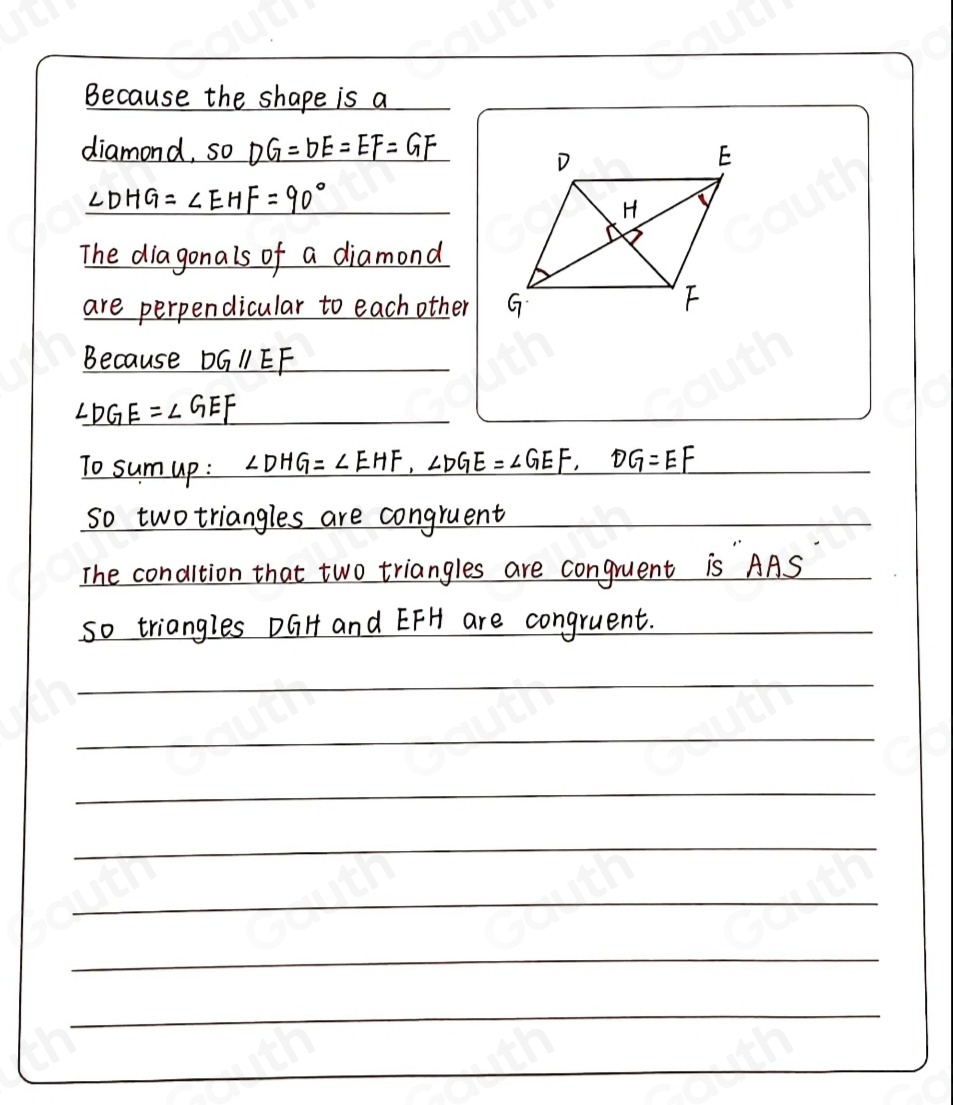 Because the shape is a
diamond, so DG=DE=EF=GF
∠DHG=∠EHF=90°
The diagonals of a diamond
are perpendicular to each other
Because DG//EF
∠DGE=∠GEF
To sum up: ∠DHG=∠EHF, ∠DGE=∠GEF, DG=EF
So two triangles are congruent
The condition that two triangles are congruent is "AAS"
so triangles DGH and EFH are congruent.
D E
H
G F
Gauth